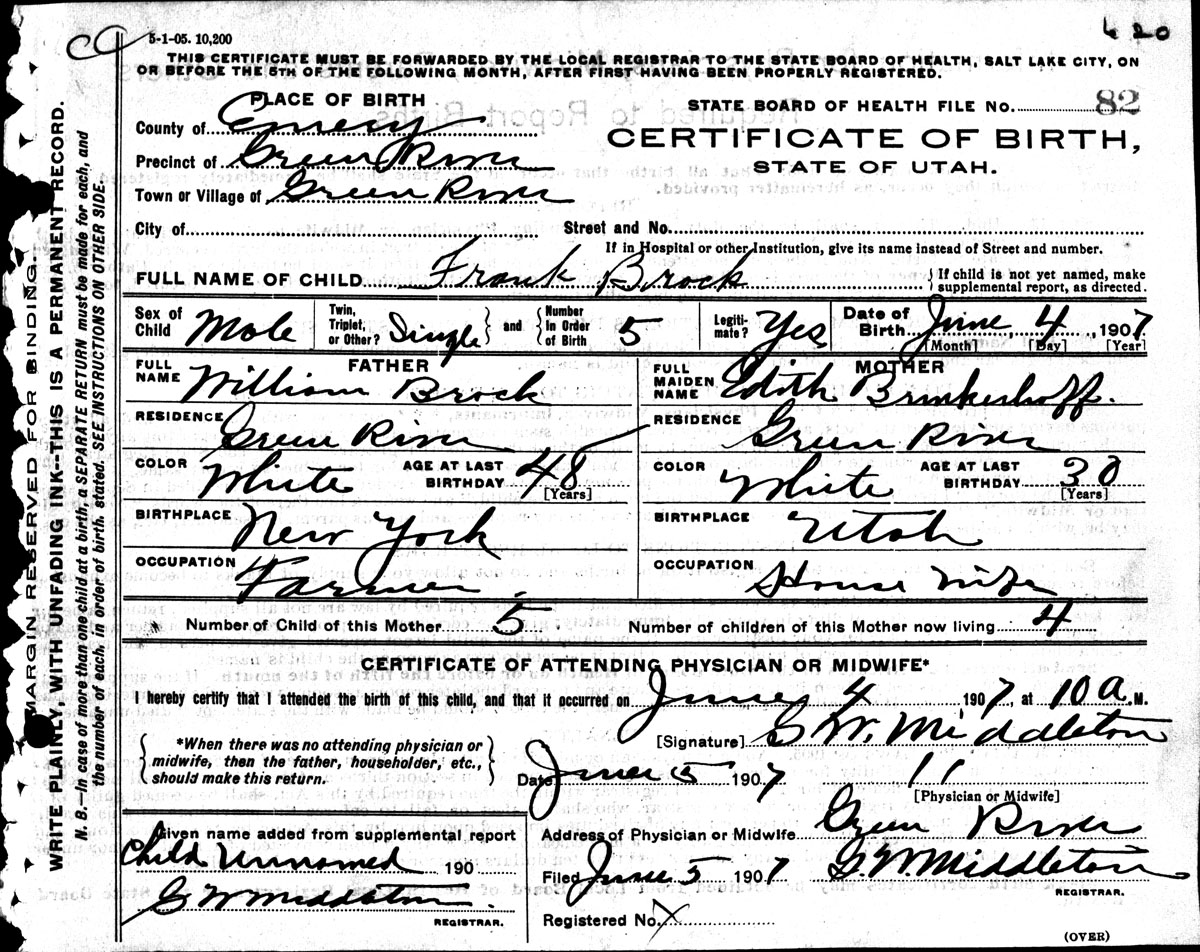 420
5-1-05. 10,200
THIS CERTIFICATE MUST BE FORWARDED BY THE LOCAL REGISTRAR TO THE STATE BOARD OF HEALTH, SALT LAKE CITY, ON
OR BEFORE THE 5TH OF THE FOLLOWING MONTH, AFTER FIRST HAVING BEEN PROPERLY REGISTERED.
PLACE OF BIRTH
STATE BOARD OF HEALTH FILE NO. 82
County of Emery
CERTIFICATE OF BIRTH,
Precinct of Green River
STATE OF UTAH.
Town or Village of Green River
City of Street and No.
If in Hospital or other Institution, give its name instead of Street and number.
FULL NAME OF CHILD Frank Brock { If child is not yet named, make
supplemental report, as directed.
Sex of Child Male Twin, Triplet, or Other? Single } and { Number In Order of Birth 5 Legiti-mate? Yes Date of Birth June 4, 1907
[Month] [Day] [Year]
FATHER MOTHER
FULL NAME William Brock FULL MAIDEN NAME Edith Brinkerhoff.
RESIDENCE Green River RESIDENCE Green River
COLOR White AGE AT LAST BIRTHDAY 48 [Years] COLOR White AGE AT LAST BIRTHDAY 30 [Years]
BIRTHPLACE New York BIRTHPLACE Utah
OCCUPATION Farmer. OCCUPATION House Wife
Number of Child of this Mother 5 Number of children of this Mother now living 4
CERTIFICATE OF ATTENDING PHYSICIAN OR MIDWIFE*
I hereby certify that I attended the birth of this child, and that it occurred on June 4 1907, at 10 a.M.
[Signature] G W. Middleton
{ *When there was no attending physician or
midwife, then the father, householder, etc.,
should make this return. }
Date June 5 1907 11
[Physician or Midwife]
Given name added from supplemental report
Child Unnamed 190
G W Middleton.
REGISTRAR.
Address of Physician or Midwife Green River
Filed June 5 1907 G. W Middleton
REGISTRAR.
Registered No. X
(OVER)
MARGIN RESERVED FOR BINDING.
WRITE PLAINLY, WITH UNFADING INK--THIS IS A PERMANENT RECORD.
N. B.—In case of more than one child at a birth, a SEPARATE RETURN must be made for each, and
the number of each, in order of birth, stated. SEE INSTRUCTIONS ON OTHER SIDE.